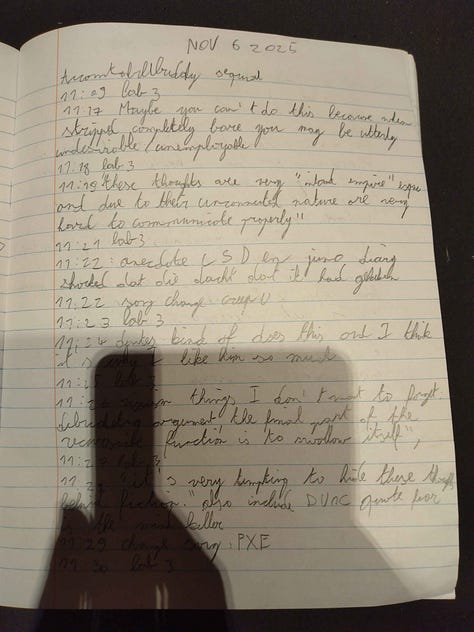 NOV 6 2025
sequel
11:09 lab 3
11:17 Maybe you can't do this because when
stripped completely bare you may be utterly
undesirable / unemployable
11:18 lab 3
11:19 "these thoughts are very "inland empire"
and due to their unconnected nature are very
hard to communicate properly"
11:21 lab 3
11:22: anecdote LSD en juno
shocked dat die dacht dat it had
11:22 song change creep U
11:23 lab 3
11:24 kind of does this and I think
it is why I like him so much
11:25 lab 3
11:26 things I don't want to forget
argument "the final part of the
function is to swallow itself",
lab 3
"it is very tempting to hide these
behind fiction." also include quote fear
the mind killer
11:29 change song: PXE
11:30 lab 3